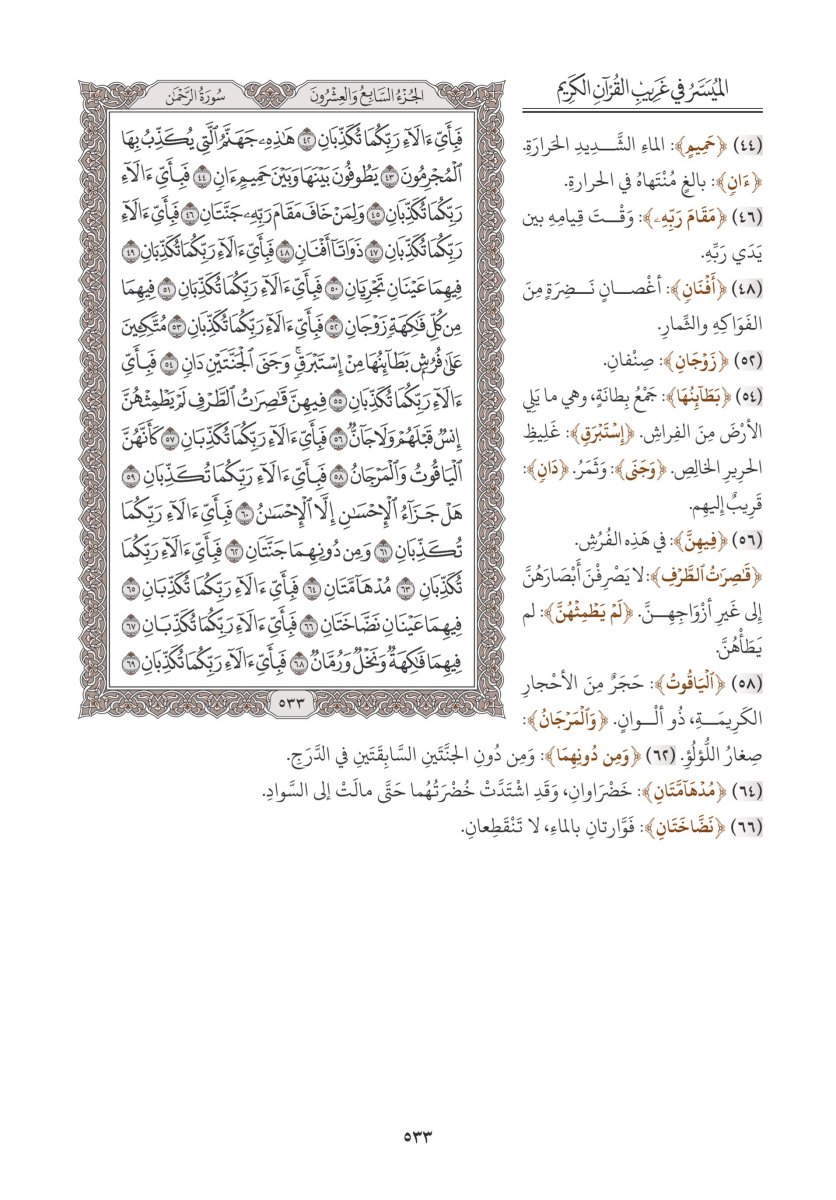 الميُسَّرُ في غَرِيبِ القُرْآنِ الكَرِيم
(٤٤) ﴿حَمِيمٍ﴾: الماءِ الشَّدِيدِ الحَرارَةِ.
﴿ءَانٖ﴾: بالِغٍ مُنْتَهاهُ في الحرارةِ.
(٤٦) ﴿مَقَامَ رَبِّهِۦ﴾: وَقْتَ قِيامِهِ بين
يَدَي رَبِّهِ.
(٤٨) ﴿أَفۡنَانٖ﴾: أغْصانٍ نَضِرَةٍ مِنَ
الفَوَاكِهِ والثِّمارِ.
(٥٢) ﴿زَوۡجَانِ﴾: صِنْفانِ.
(٥٤) ﴿بَطَآئِنُهَا﴾: جَمْعُ بِطانَةٍ، وهي ما يَلِي
الأرْضَ مِنَ الفِراشِ. ﴿إِسۡتَبۡرَقٖ﴾: غَلِيظِ
الحريرِ الخالِصِ. ﴿وَجَنَى﴾: وَثَمَرُ. ﴿دَانٖ﴾:
قَرِيبٌ إليهِم.
(٥٦) ﴿فِيهِنَّ﴾: في هَذِه الفُرُشِ.
﴿قَٰصِرَٰتُ ٱلطَّرۡفِ﴾: لا يَصْرِفْنَ أبْصَارَهُنَّ
إلى غَيرِ أزْوَاجِهِنَّ. ﴿لَمۡ يَطۡمِثۡهُنَّ﴾: لم
يَطَأْهُنَّ.
(٥٨) ﴿ٱلۡيَاقُوتُ﴾: حَجَرٌ مِنَ الأحْجارِ
الكَرِيمَةِ، ذُو ألْوانٍ. ﴿وَٱلۡمَرۡجَانُ﴾:
صِغارُ اللُّؤلُؤِ. (٦٢) ﴿وَمِن دُونِهِمَا﴾: وَمِن دُونِ الجنَّتَينِ السَّابِقَتَينِ في الدَّرَجِ.
(٦٤) ﴿مُدۡهَآمَّتَانِ﴾: خَضْرَاوانِ، وَقَدِ اشْتَدَّتْ خُضْرَتُهُما حَتَّى مالَتْ إلى السَّوادِ.
(٦٦) ﴿نَضَّاخَتَانِ﴾: فَوَّارتانِ بالماءِ، لا تَنْقَطِعانِ.
الجُزْءُ السَّابِعُ وَالعِشْرُونَ سُورَةُ الرَّحْمَٰن
فَبِأَيِّ ءَالَآءِ رَبِّكُمَا تُكَذِّبَانِ ٤٢ هَٰذِهِۦ جَهَنَّمُ ٱلَّتِي يُكَذِّبُ بِهَا
ٱلۡمُجۡرِمُونَ ٤٣ يَطُوفُونَ بَيۡنَهَا وَبَيۡنَ حَمِيمٍ ءَانٖ ٤٤ فَبِأَيِّ ءَالَآءِ
رَبِّكُمَا تُكَذِّبَانِ ٤٥ وَلِمَنۡ خَافَ مَقَامَ رَبِّهِۦ جَنَّتَانِ ٤٦ فَبِأَيِّ ءَالَآءِ
رَبِّكُمَا تُكَذِّبَانِ ٤٧ ذَوَاتَآ أَفۡنَانٖ ٤٨ فَبِأَيِّ ءَالَآءِ رَبِّكُمَا تُكَذِّبَانِ ٤٩
فِيهِمَا عَيۡنَانِ تَجۡرِيَانِ ٥٠ فَبِأَيِّ ءَالَآءِ رَبِّكُمَا تُكَذِّبَانِ ٥١ فِيهِمَا
مِن كُلِّ فَٰكِهَةٖ زَوۡجَانِ ٥٢ فَبِأَيِّ ءَالَآءِ رَبِّكُمَا تُكَذِّبَانِ ٥٣ مُتَّكِـِٔينَ
عَلَىٰ فُرُشِۭ بَطَآئِنُهَا مِنۡ إِسۡتَبۡرَقٖۚ وَجَنَى ٱلۡجَنَّتَيۡنِ دَانٖ ٥٤ فَبِأَيِّ
ءَالَآءِ رَبِّكُمَا تُكَذِّبَانِ ٥٥ فِيهِنَّ قَٰصِرَٰتُ ٱلطَّرۡفِ لَمۡ يَطۡمِثۡهُنَّ
إِنسٞ قَبۡلَهُمۡ وَلَا جَآنّٞ ٥٦ فَبِأَيِّ ءَالَآءِ رَبِّكُمَا تُكَذِّبَانِ ٥٧ كَأَنَّهُنَّ
ٱلۡيَاقُوتُ وَٱلۡمَرۡجَانُ ٥٨ فَبِأَيِّ ءَالَآءِ رَبِّكُمَا تُكَذِّبَانِ ٥٩
هَلۡ جَزَآءُ ٱلۡإِحۡسَٰنِ إِلَّا ٱلۡإِحۡسَٰنُ ٦٠ فَبِأَيِّ ءَالَآءِ رَبِّكُمَا
تُكَذِّبَانِ ٦١ وَمِن دُونِهِمَا جَنَّتَانِ ٦٢ فَبِأَيِّ ءَالَآءِ رَبِّكُمَا
تُكَذِّبَانِ ٦٣ مُدۡهَآمَّتَانِ ٦٤ فَبِأَيِّ ءَالَآءِ رَبِّكُمَا تُكَذِّبَانِ ٦٥
فِيهِمَا عَيۡنَانِ نَضَّاخَتَانِ ٦٦ فَبِأَيِّ ءَالَآءِ رَبِّكُمَا تُكَذِّبَانِ ٦٧
فِيهِمَا فَٰكِهَةٞ وَنَخۡلٞ وَرُمَّانٞ ٦٨ فَبِأَيِّ ءَالَآءِ رَبِّكُمَا تُكَذِّبَانِ ٦٩
٥٣٣
٥٣٣